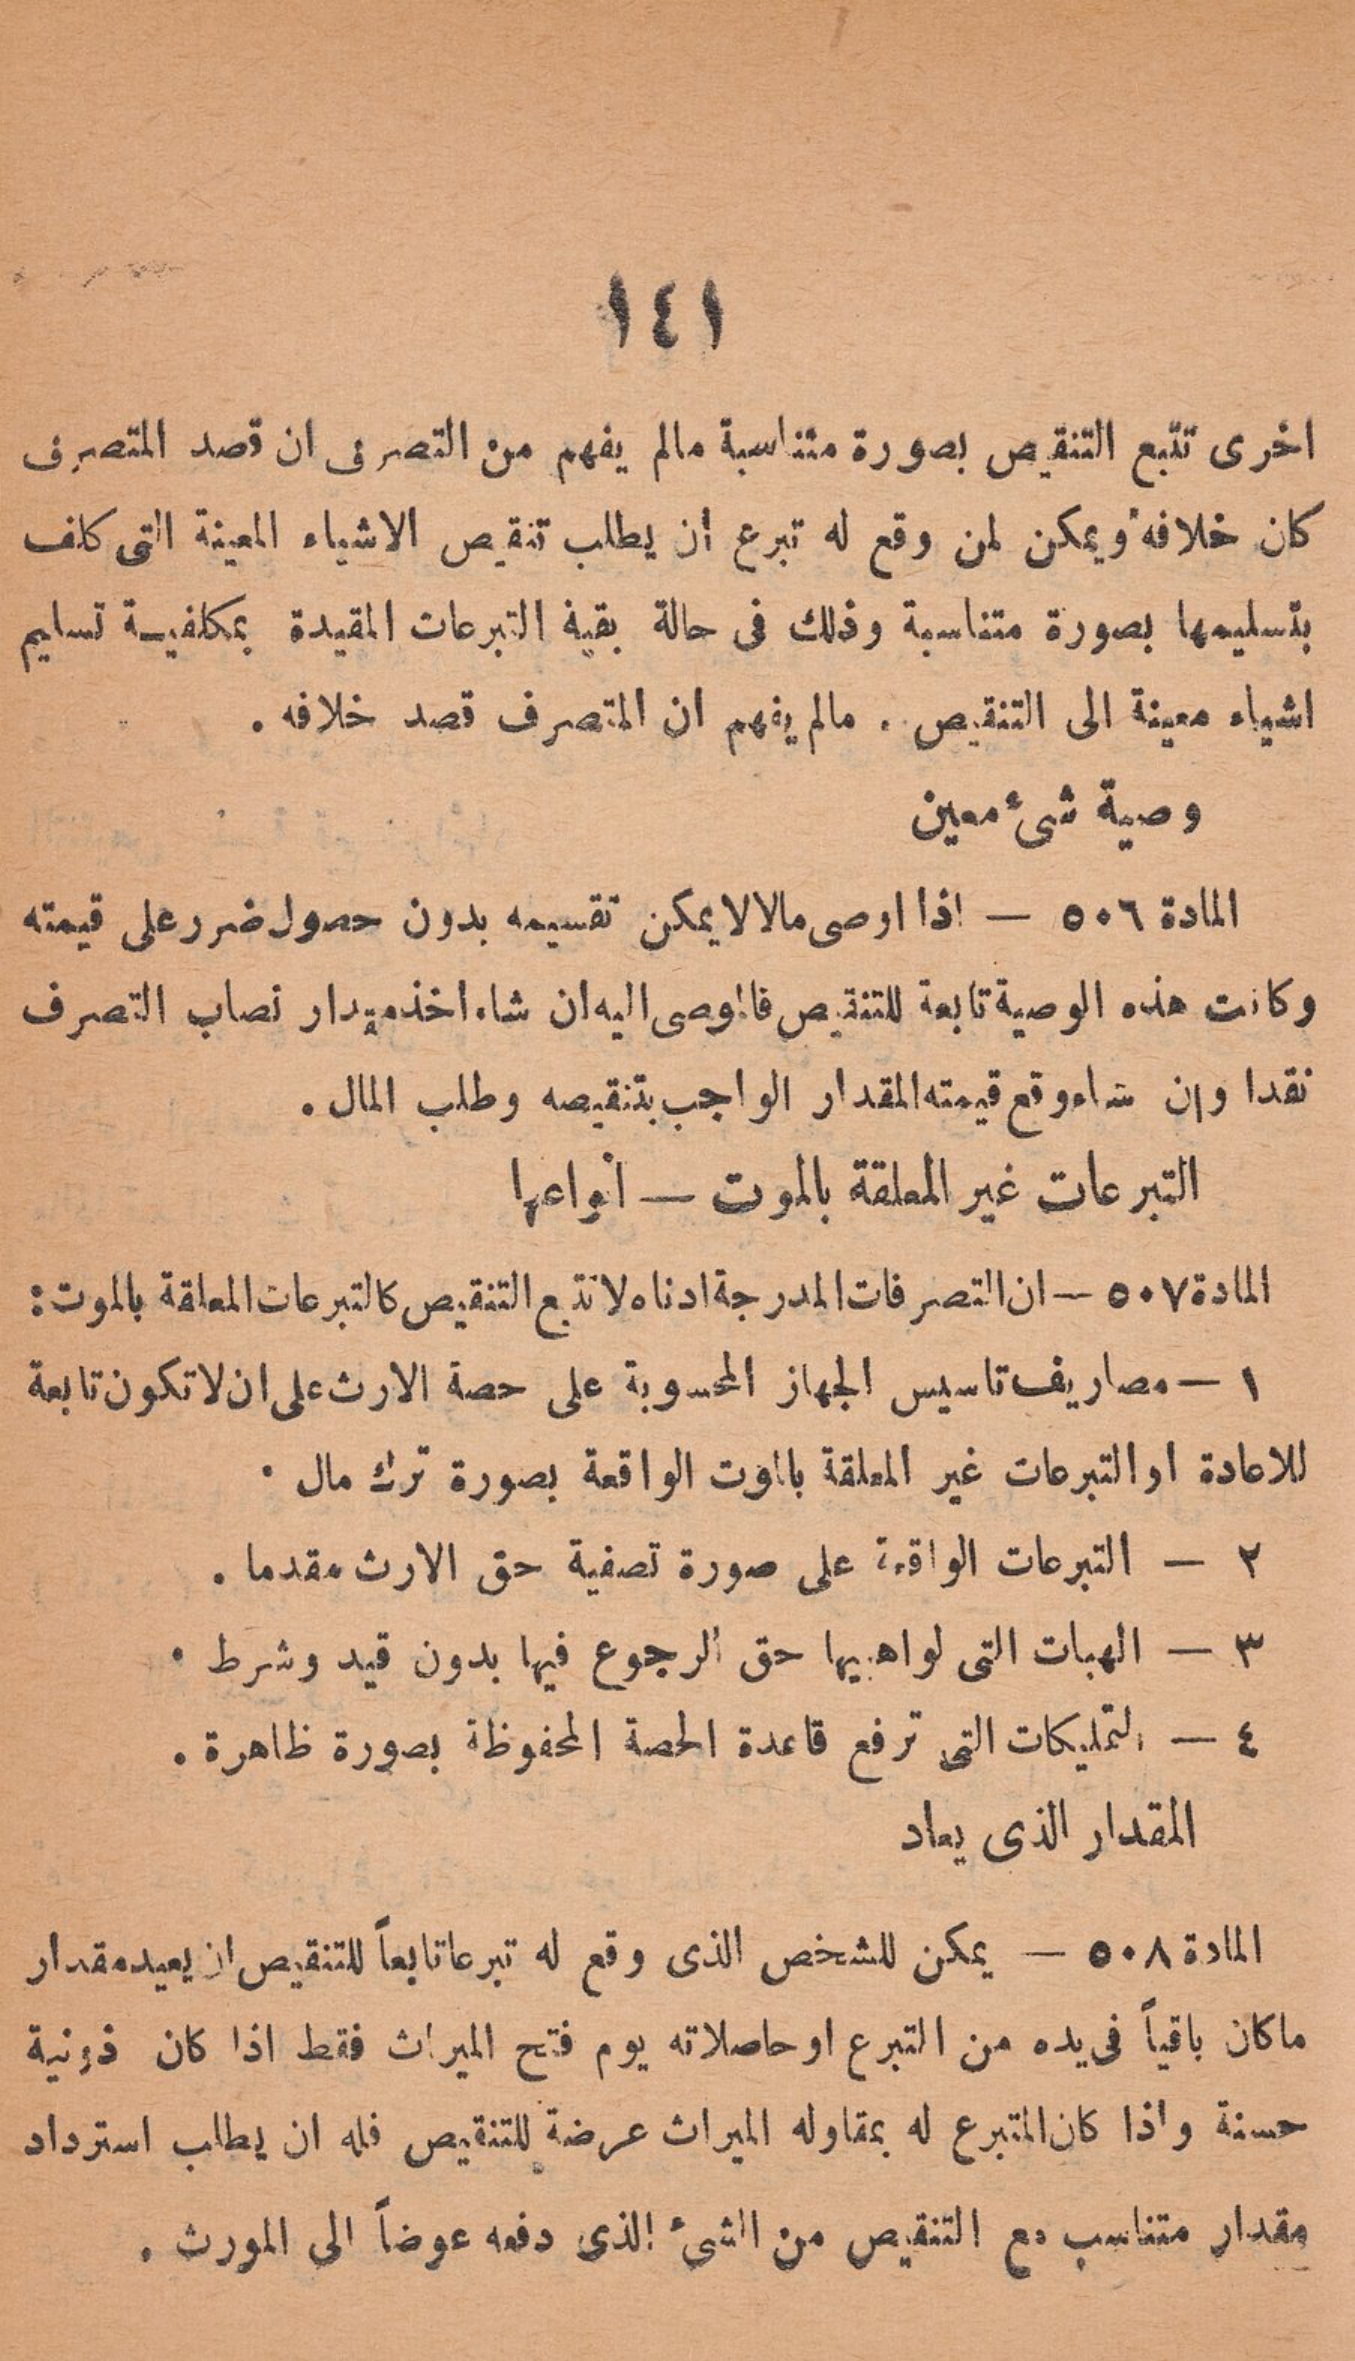 ١٤١
اخرى تتبع التنقيص بصورة متناسبة مالم يفهم من التصرف ان قصد المتصرف
كان خلافه ويمكن لمن وقع له تبرع أن يطلب تنقيص الاشياء المعينة التى كلف
بتسليمها بصورة متناسبة وذلك فى حالة بقية التبرعات المقيدة بمكلفيـة تسليم
اشياء معينة الى التنقيص . مالم يفهم ان المتصرف قصد خلافه .
وصية شىء معين
المادة ٥٠٦ — اذا اوصى مالا لا يمكن تقسيمه بدون حصول ضرر على قيمته
وكانت هذه الوصية تابعة للتنقيص فالموصى اليه ان شاء اخذ مقدار نصاب التصرف
نقدا وإن شاء وقع قيمته المقدار الواجب بتنقيصه وطلب المال .
التبرعات غير المعلقة بالموت — انواعها
المادة ٥٠٧ — ان التصرفات المدرجة ادناه لا تتبع التنقيص كالتبرعات المعلقة بالموت :
١ — مصاريف تاسيس الجهاز المحسوبة على حصة الارث على ان لا تكون تابعة
للاعادة او التبرعات غير المعلقة بالموت الواقعة بصورة ترك مال ·
٢ — التبرعات الواقعة على صورة تصفية حق الارث مقدما .
٣ — الهبات التى لواهبيها حق الرجوع فيها بدون قيد وشرط ·
٤ — التمليكات التى ترفع قاعدة الحصة المحفوظة بصورة ظاهرة .
المقدار الذى يعاد
المادة ٥٠٨ — يمكن للشخص الذى وقع له تبرعا تابعاً للتنقيص ان يعيد مقدار
ماكان باقياً فى يده من التبرع او حاصلاته يوم فتح الميراث فقط اذا كان ذو نية
حسنة واذا كان المتبرع له بمقاوله الميراث عرضة للتنقيص فله ان يطلب استرداد
مقدار متناسب مع التنقيص من الشىء الذى دفعه عوضاً الى المورث .